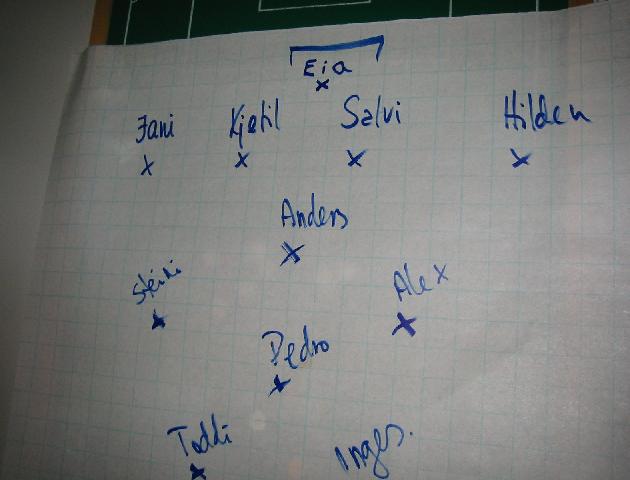 Eia
Jani Kjetil Salvi Hilden
Anders
Steini Alex
Pedro
Toddi Inges.